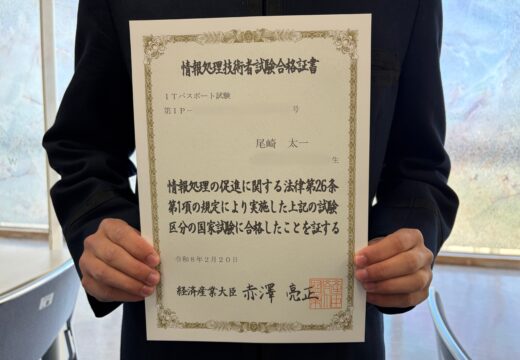 情報処理技術者試験合格証書
ITパスポート試験
第IP－ 号
尾崎 太一
生
情報処理の促進に関する法律第26条
第1項の規定により実施した上記の試験
区分の国家試験に合格したことを証する
令和8年2月20日
経済産業大臣 赤澤 亮正